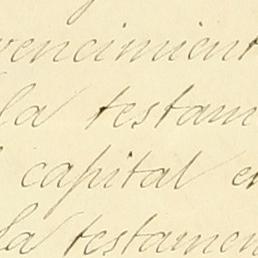 vencimient
la testam
capital e
la testamen